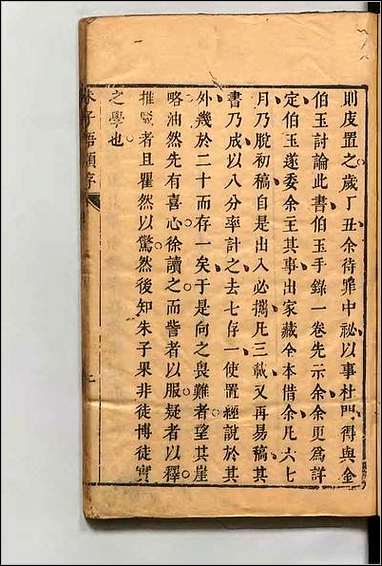 則庋置之歲丁丑余待罪中祕以事杜門得與金
伯玉討論此書伯玉手錄一卷先示余余更為詳
定伯玉遂委余主其事出家藏全本借余凡六七
月乃脫初稿自是出入必攜凡三載又再易稿其
書乃成以八分率計之去七存一使置經說於其
外幾於二十而存一矣于是向之畏難者望其崖
略油然先有喜心徐讀之而訾者以服疑者以釋
推賢者且瞿然以驚然後知朱子果非徒博徒實
之學也
朱子語類序
七